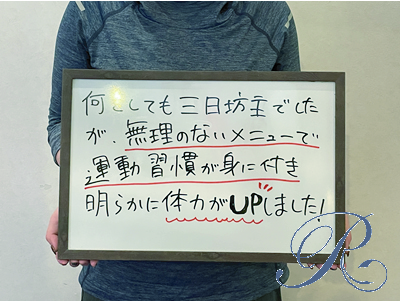 何をしても三日坊主でした
が、無理のないメニューで
運動習慣が身に付き
明らかに体力がUPしました!
R